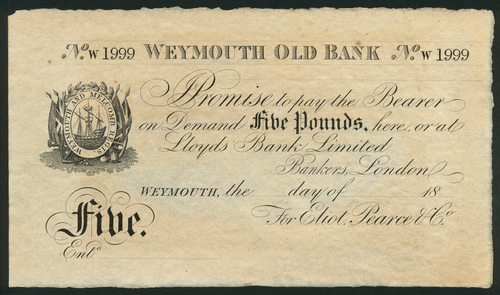 No. W 1999 WEYMOUTH OLD BANK No. W 1999
WEYMOUTH AND MELCOMBE REGIS
Promise to pay the Bearer
on Demand Five Pounds, here, or at
Lloyds Bank Limited
Bankers, London
WEYMOUTH, the day of 18
Five.
For Eliot, Pearce & Co.
Entd.